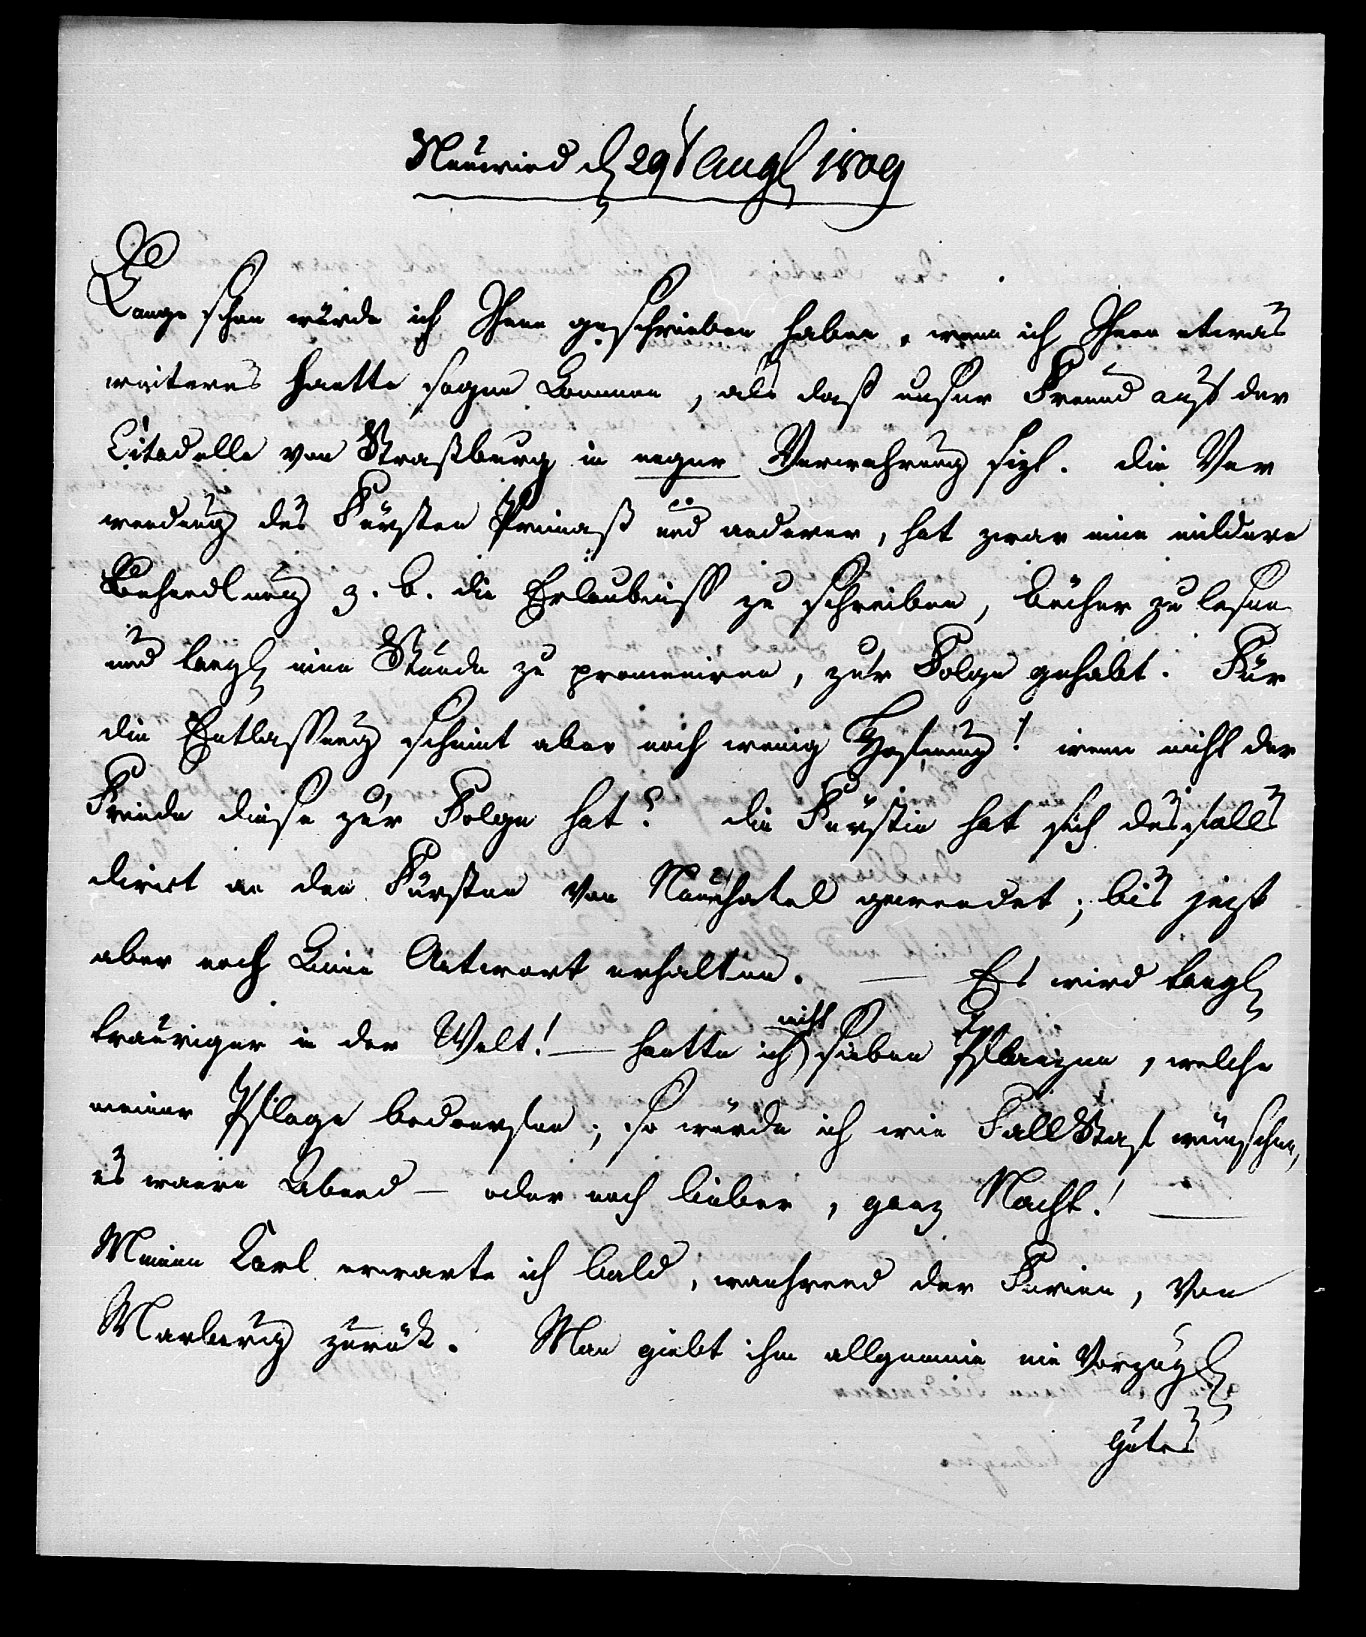 Neuwied d 29t Augst 1809
Lange schon würde ich Ihnen geschrieben haben, wenn ich Ihnen etwas
weiteres haette sagen können, als daß unser Freund auf der
Citadelle von Straßburg in enger Verwahrung sizt. die Ver
wendung des Fürsten Primaß und anderer, hat zwar eine mildere
Behandlung z. b. die Erlaubniss zu schreiben, bücher zu lesen
und taegl eine Stunde zu promeniren, zur Folge gehabt. Für
die Entlassung scheint aber noch wenig Hofnung! wenn nicht der
Friede diese zur Folge hat? die Fürstin hat sich desfalls
direct an den Fürsten von Neuchatel gewendet; bis jezt
aber noch keine Antwort erhalten. — Es wird taegl
trauriger in der Welt! — haette ich nicht sieben Pflanzen, welche
meiner Pflege bedoerfen; so würde ich wie Fallstaf wünschen,
es waere Abend — oder noch lieber, ganz Nacht! —
Meinen Carl erwarte ich bald, waehrend der Ferien, von
Marburg zurük. Man giebt ihm allgemein ein Vorzügl
Gutes